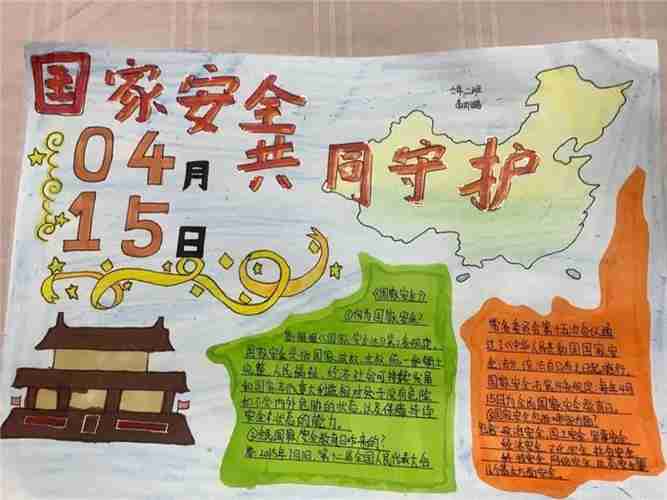 国家安全
共同守护
04月
15日
七年二班
《国家安全》
①何为国家安全?
根据《国家安全法》第二条规定,
国家安全是指国家政权、主权、统一和领土
完整、人民福祉、经济社会可持续发展
和国家其他重大利益相对处于没有危险
和不受内外威胁的状态,以及保障持续
安全状态的能力。
②全民国家安全教育日
2015年7月1日,第十二届全国人民代表大会
常务委员会第十五次会议通
过了《中华人民共和国国家安
全法》
国家安全法第十四条规定,每年4月
15日为全民国家安全教育日。
③国家安全包括哪些方面?
政治安全、国土安全、军事安全
经济安全、文化安全、社会安全